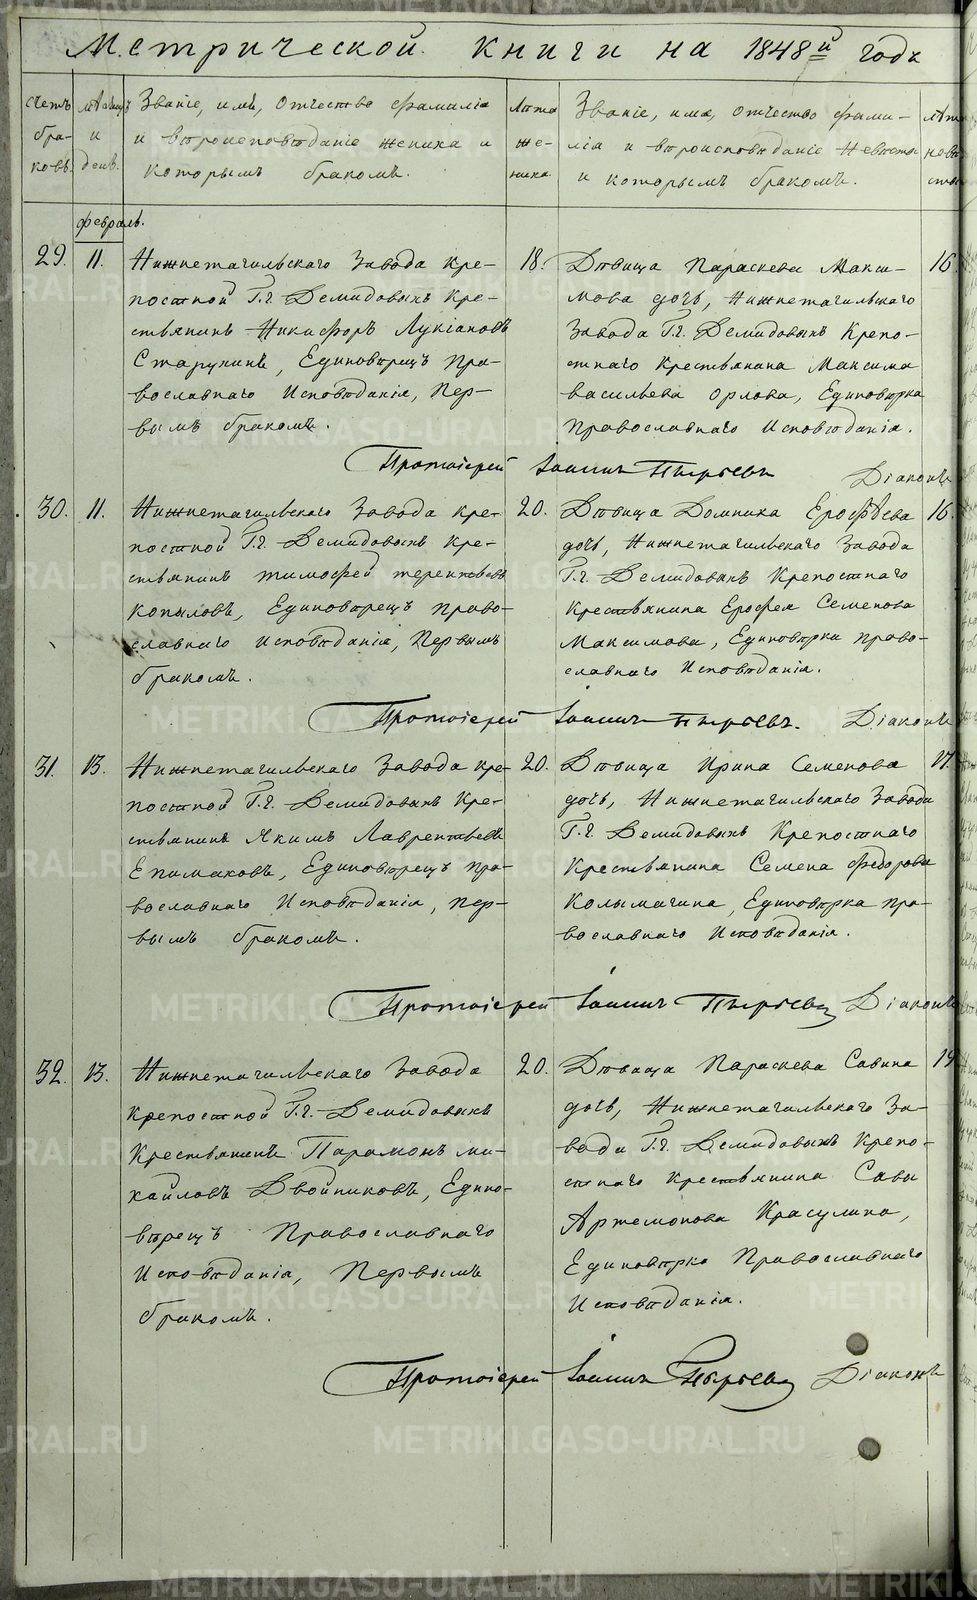 Метрической книги на 1848й годъ
счетъ браковъ
мѣсяцъ и день.
Званіе, имя, отчество фамилія
и вѣроисповѣданіе жениха и
которымъ бракомъ.
лѣта жениха
Званіе, имя, отчество фами-
лія и вѣроисповѣданіе невѣсты
и которымъ бракомъ.
февраль.
29.
11.
Нижнетагильскаго завода кре-
постной Г.г. Демидовыхъ кре-
стьянинъ Никифоръ Лукіановъ
Старухинъ, Единовѣрецъ пра-
вославнаго исповѣданія, пер-
вымъ бракомъ.
18.
Дѣвица Параскева Макси-
мова дочь, Нижнетагильскаго
завода Г.г. Демидовыхъ крепо-
стнаго крестьянина Максима
васильева Орлова, Единовѣрка
православнаго исповѣданія.
16
Протоіерей Іоаннъ Пырьевъ Діаконъ
30.
11.
Нижнетагильскаго завода кре-
постной Г.г. Демидовыхъ кре-
стьянинъ тимофей терентьевъ
копыловъ, Единовѣрецъ право-
славнаго исповѣданія, первымъ
бракомъ.
20.
Дѣвица Домника Ерофѣева
дочь, Нижнетагильскаго завода
Г.г. Демидовыхъ крепостнаго
крестьянина Ерофея Семенова
Максимова, Единовѣрка право-
славнаго исповѣданія.
16.
Протоіерей Іоаннъ Пырьевъ. Діаконъ
31.
13.
Нижнетагильскаго завода кре-
постной Г.г. Демидовыхъ кре-
стьянинъ Якимъ Лаврентьевъ
Епимаховъ, Единовѣрецъ пра-
вославнаго исповѣданія, пер-
вымъ бракомъ.
20.
Дѣвица Ирина Семенова
дочь, Нижнетагильскаго завода
Г.г. Демидовыхъ крепостнаго
крестьянина Семена федорова
Колымагина, Единовѣрка пра-
вославнаго исповѣданія.
17.
Протоіерей Іоаннъ Пырьевъ Діаконъ
32.
13.
Нижнетагильскаго завода
крепостной Г.г. Демидовыхъ
крестьянинъ Парамонъ ми-
хайловъ Двойниковъ, Едино-
вѣрецъ православнаго
исповѣданія, первымъ
бракомъ.
20.
Дѣвица Параскева Савина
дочь, Нижнетагильскаго за-
вода Г.г. Демидовыхъ крепо-
стнаго крестьянина Савы
Артемонова Красулина,
Единовѣрка православнаго
исповѣданія.
19
Протоіерей Іоаннъ Пырьевъ Діаконъ
METRIKI.GASO-URAL.RU